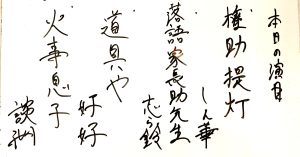 本日の演目
権助提灯
しん華
落語家長助先生
志ら鈴
道具や
好好
火事息子
談洲